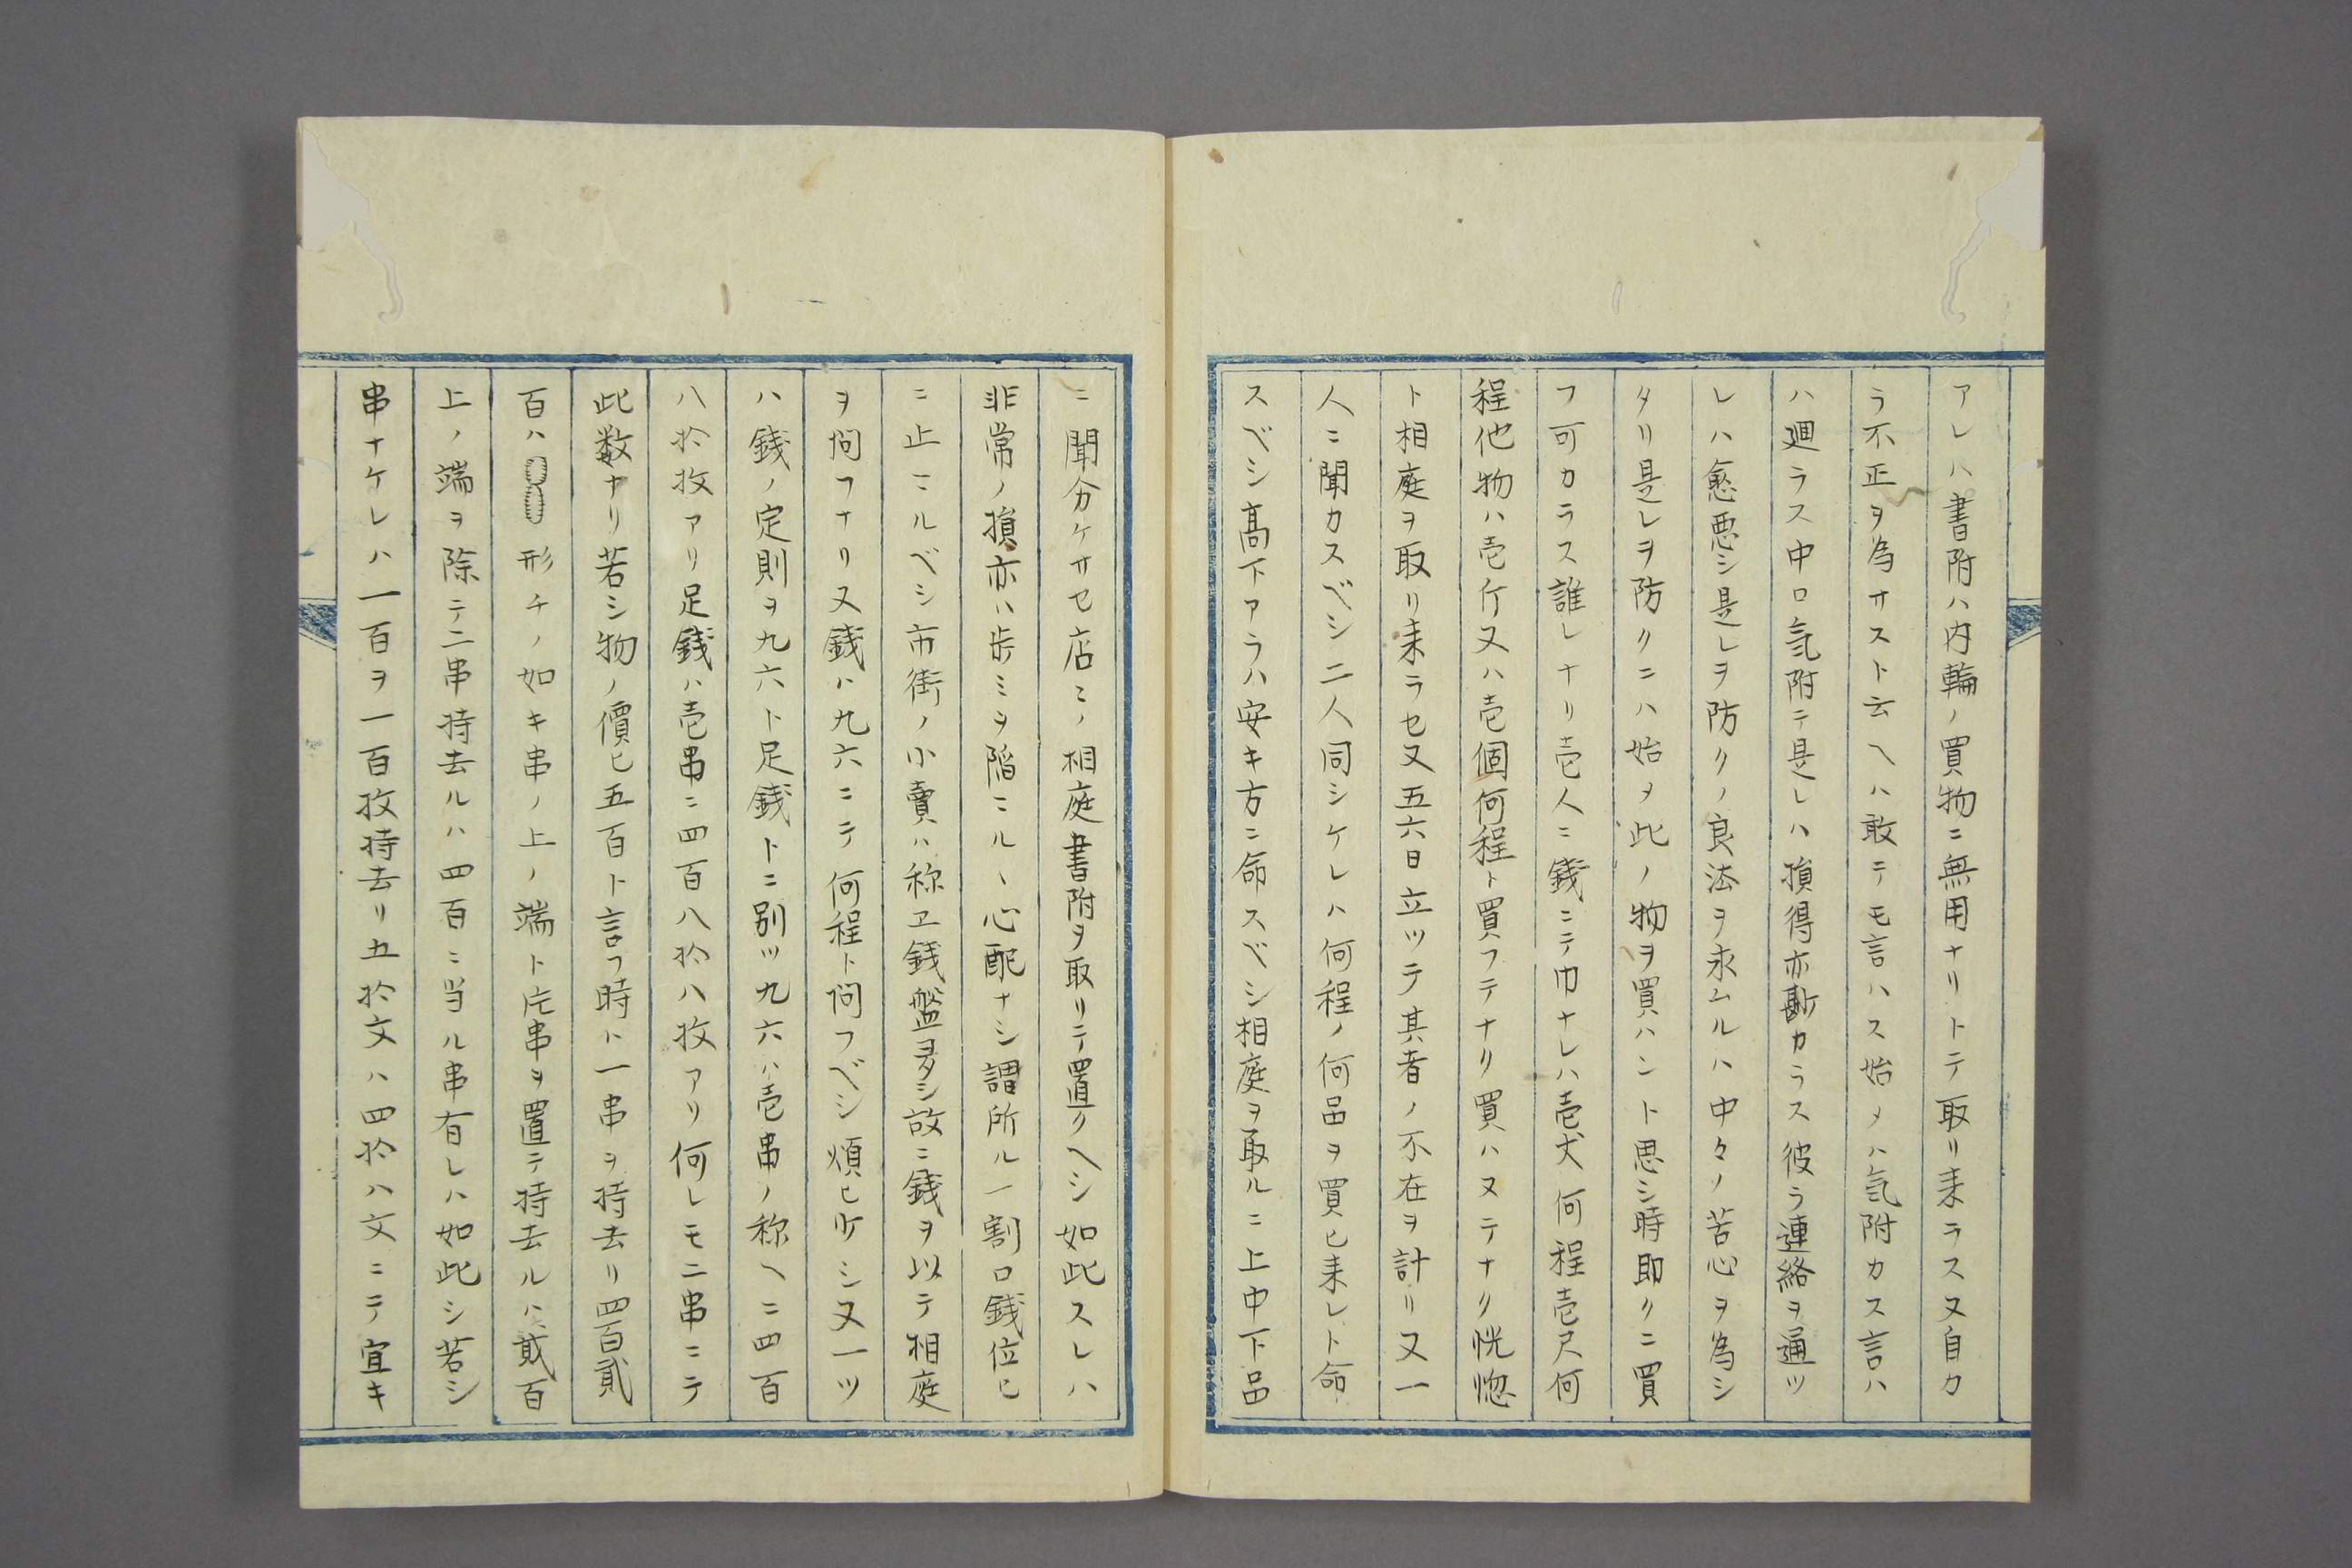 アレハ書附ハ内輪ノ買物ニ無用ナリトテ取リ来ラス又自カ
ラ不正ヲ為サスト云ヘハ敢テモ言ハス始メハ氣附カス言ハ
ハ廻ラス中口氣附テ是レハ損得亦尠カラス彼ラ連絡ヲ通ツ
レハ愈悪シ是レヲ防クノ良法ヲ求ムルハ中々ノ苦心ヲ為シ
タリ是レヲ防クニハ始メ此ノ物ヲ買ハント思シ時即クニ買
フ可カラス誰レナリ壱人ニ錢ニテ巾ナレハ壱丈何程壱尺何
程他物ハ壱斤又ハ壱個何程ト買フテナリ買ハヌテナリ恍惚
ト相庭ヲ取リ来ラセ又五六日立ツテ其者ノ不在ヲ計リ又一
人ニ聞カスベシ二人同シケレハ何程ノ何品ヲ買ヒ来レト命
スベシ高下アラハ安キ方ニ命スベシ相庭ヲ取ルニ上中下品
ニ聞分ケサセ店ニノ相庭書附ヲ取リテ置クヘシ如此スレハ
非常ノ損亦ハ歩ミヲ陥ニルヽ心配ナシ謂所ル一割口錢位ヒ
ニ止ニルベシ市街ノ小賣ハ称ヱ錢盤ヨタシ故ニ錢ヲ以テ相庭
ヲ問フナリ又錢ハ九六ニテ何程ト問フベシ煩ヒ少シ又一ツ
ハ錢ノ定則ヲ九六ト足錢トニ別ツ九六ハ壱串ノ称ヘニ四百
八拾枚アリ足錢ハ壱串ニ四百八拾八枚アリ何レモ二串ニテ
此数ナリ若シ物ノ價ヒ五百ト言フ時ハ一串ヲ持去リ四百貳
百ハ形チノ如キ串ノ上ノ端ト片串ヲ置テ持去ルハ貳百
上ノ端ヲ除テ二串持去ルハ四百ニ当ル串有レハ如此シ若シ
串ナケレハ一百ヲ一百枚持去リ五拾文ハ四拾八文ニテ宜キ